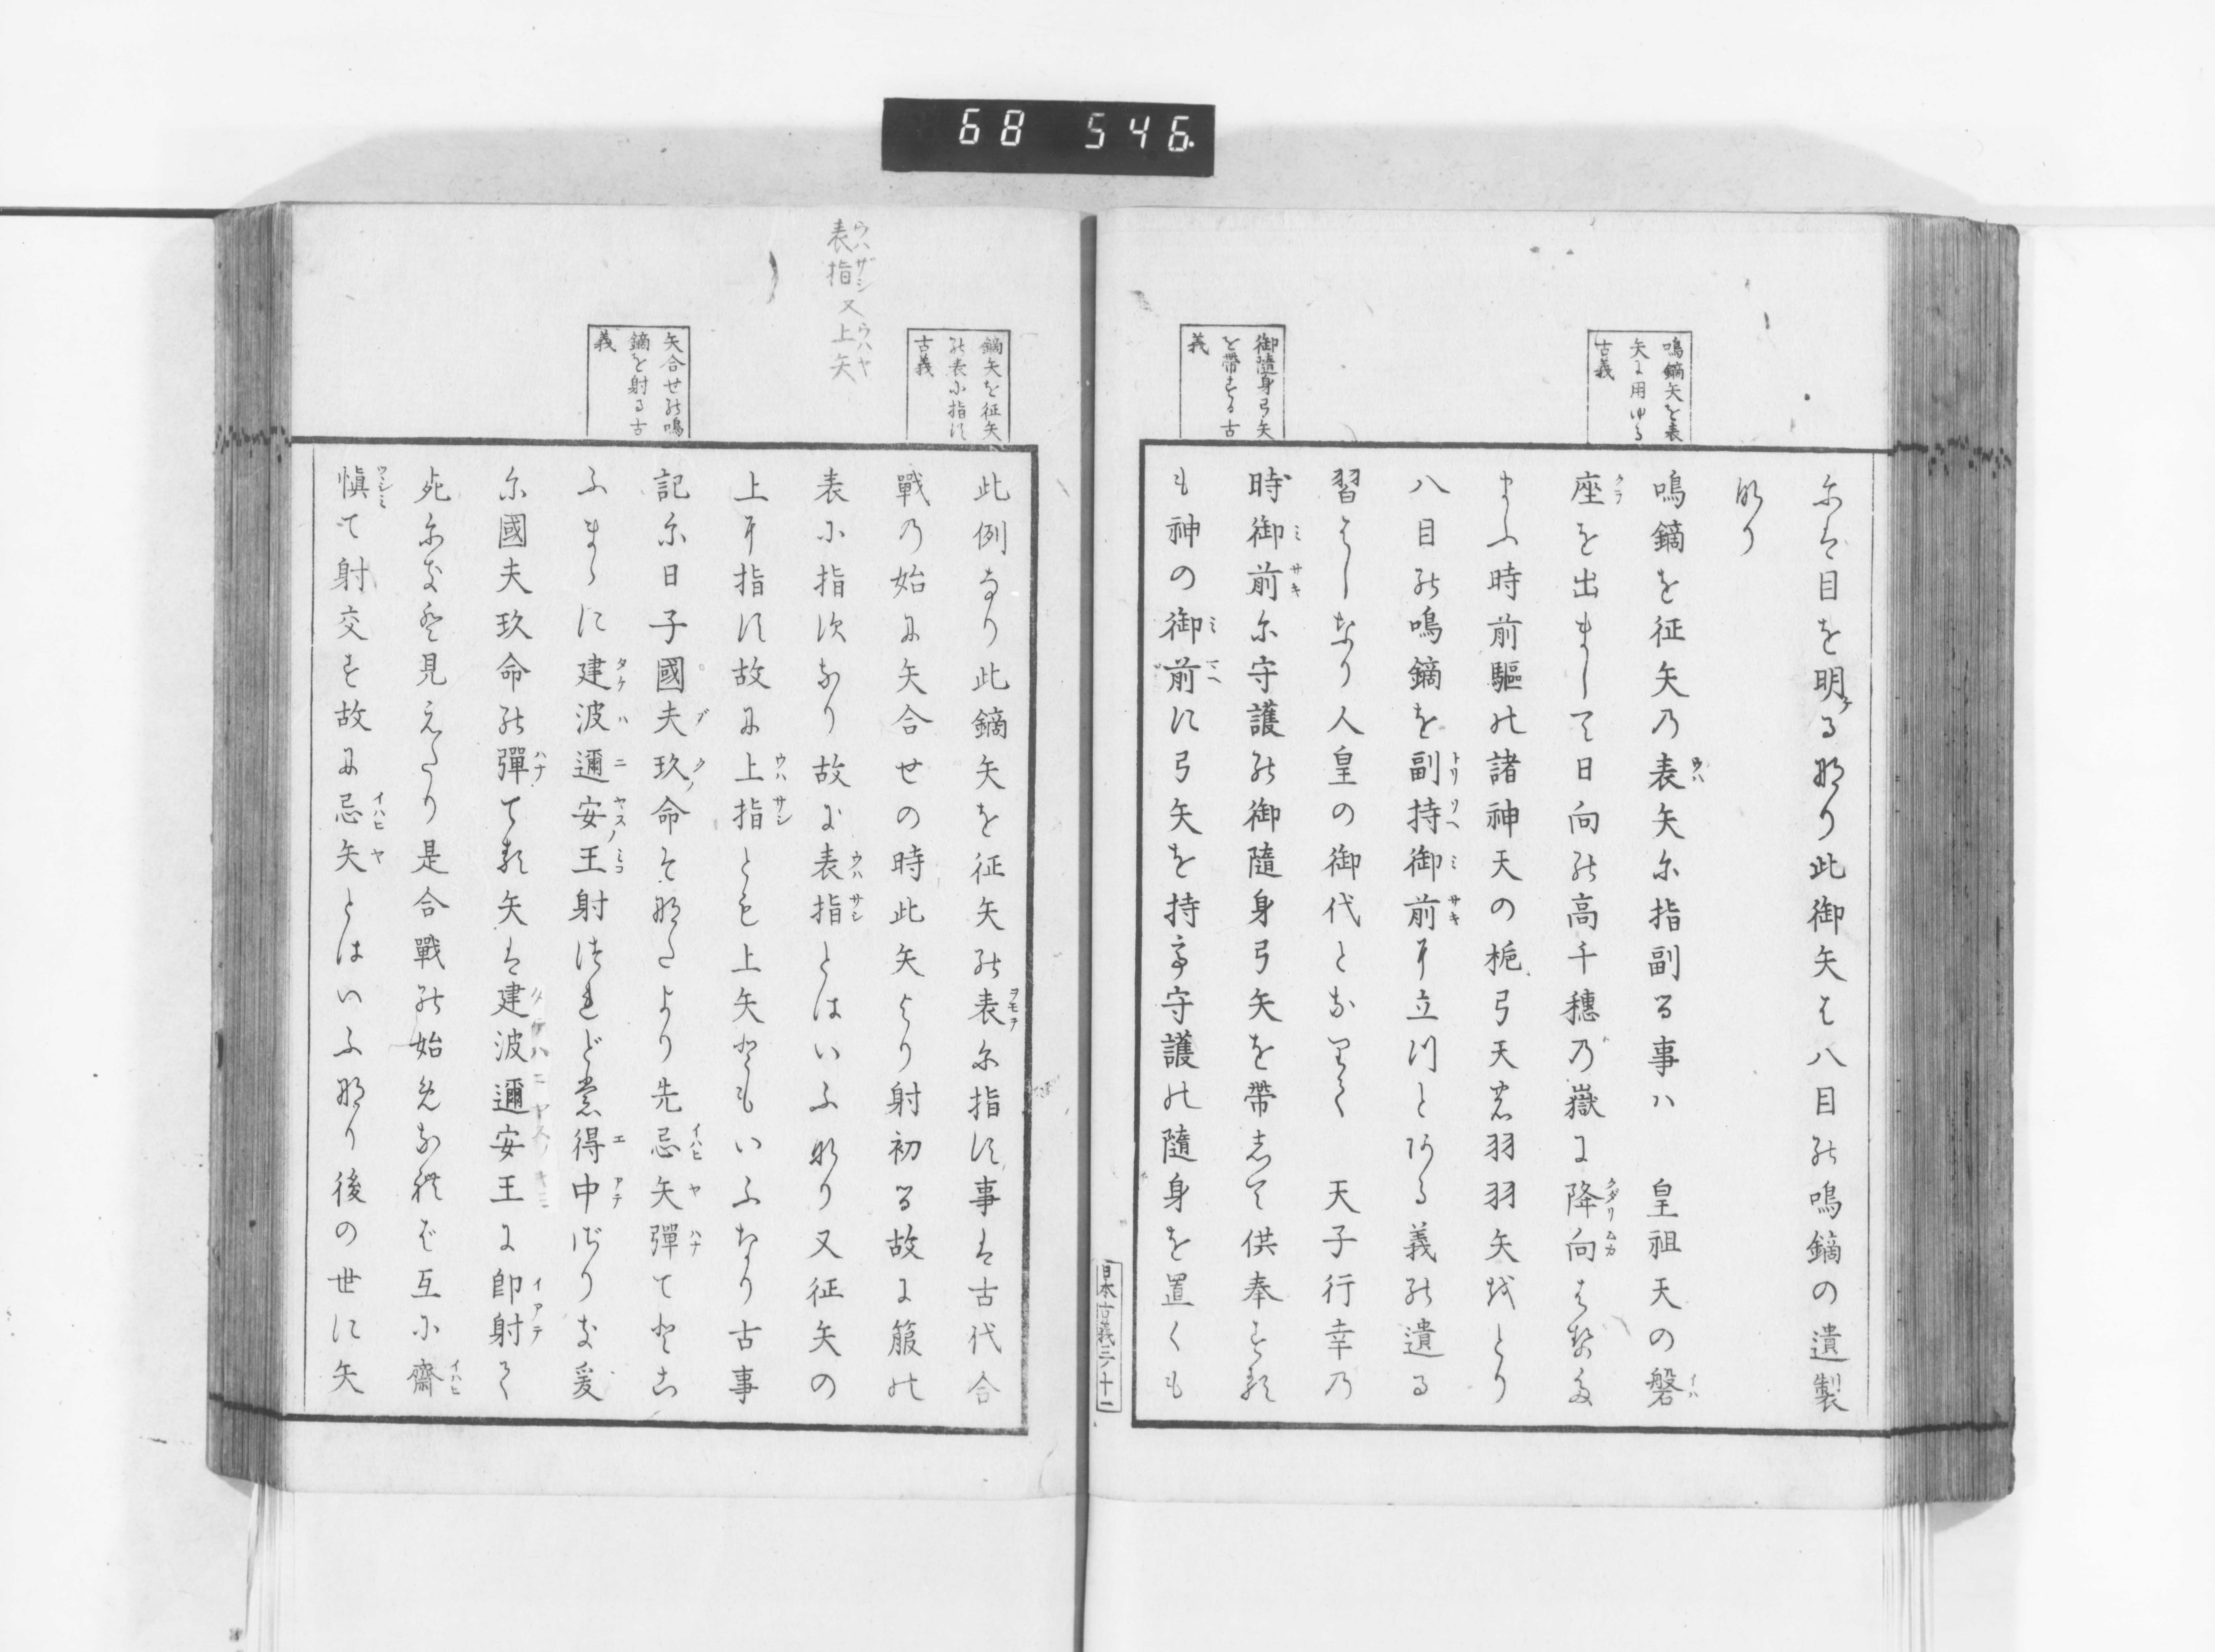 68 546.
鳴鏑矢を表
矢に用ゆる
古義
御隨身弓矢
を帶する古
義
尓は目を明る那り此御矢は八目能鳴鏑の遺製
那り
鳴鏑を征矢乃表矢尓指副る事ハ 皇祖天の磐
座を出まして日向能高千穗乃嶽に降向はせた
まふ時前驅能諸神天の梔弓天羽羽矢を
八目能鳴鏑を副持御前に立川とある義能遺る
習はしなり人皇の御代となりて 天子行幸乃
時御前尓守護能御隨身弓矢を帶志て供奉する
も神の御前に弓矢を持て守護能隨身を置くも
日本古義三ノ十一
鏑矢を征矢
能表に指す
古義
表指又上矢
矢合せ能鳴
鏑を射る古
義
此例なり此鏑矢を征矢能表尓指す事は古代合
戰乃始に矢合せの時此矢より射初る故に箙能
表に指すなり故に表指とはいふ那り又征矢の
上に指す故に上指とも上矢ともいふなり古事
記尓日子國夫玖命そなたより先忌矢彈てとこ
ふまゝに建波邇安王射つれど得中ざりき爰
尓國夫玖命能彈てる矢は建波邇安王に即射て
死尓き見えたり是合戰能始めなれば互に齋
愼て射交す故に忌矢とはいふ那り後の世に矢